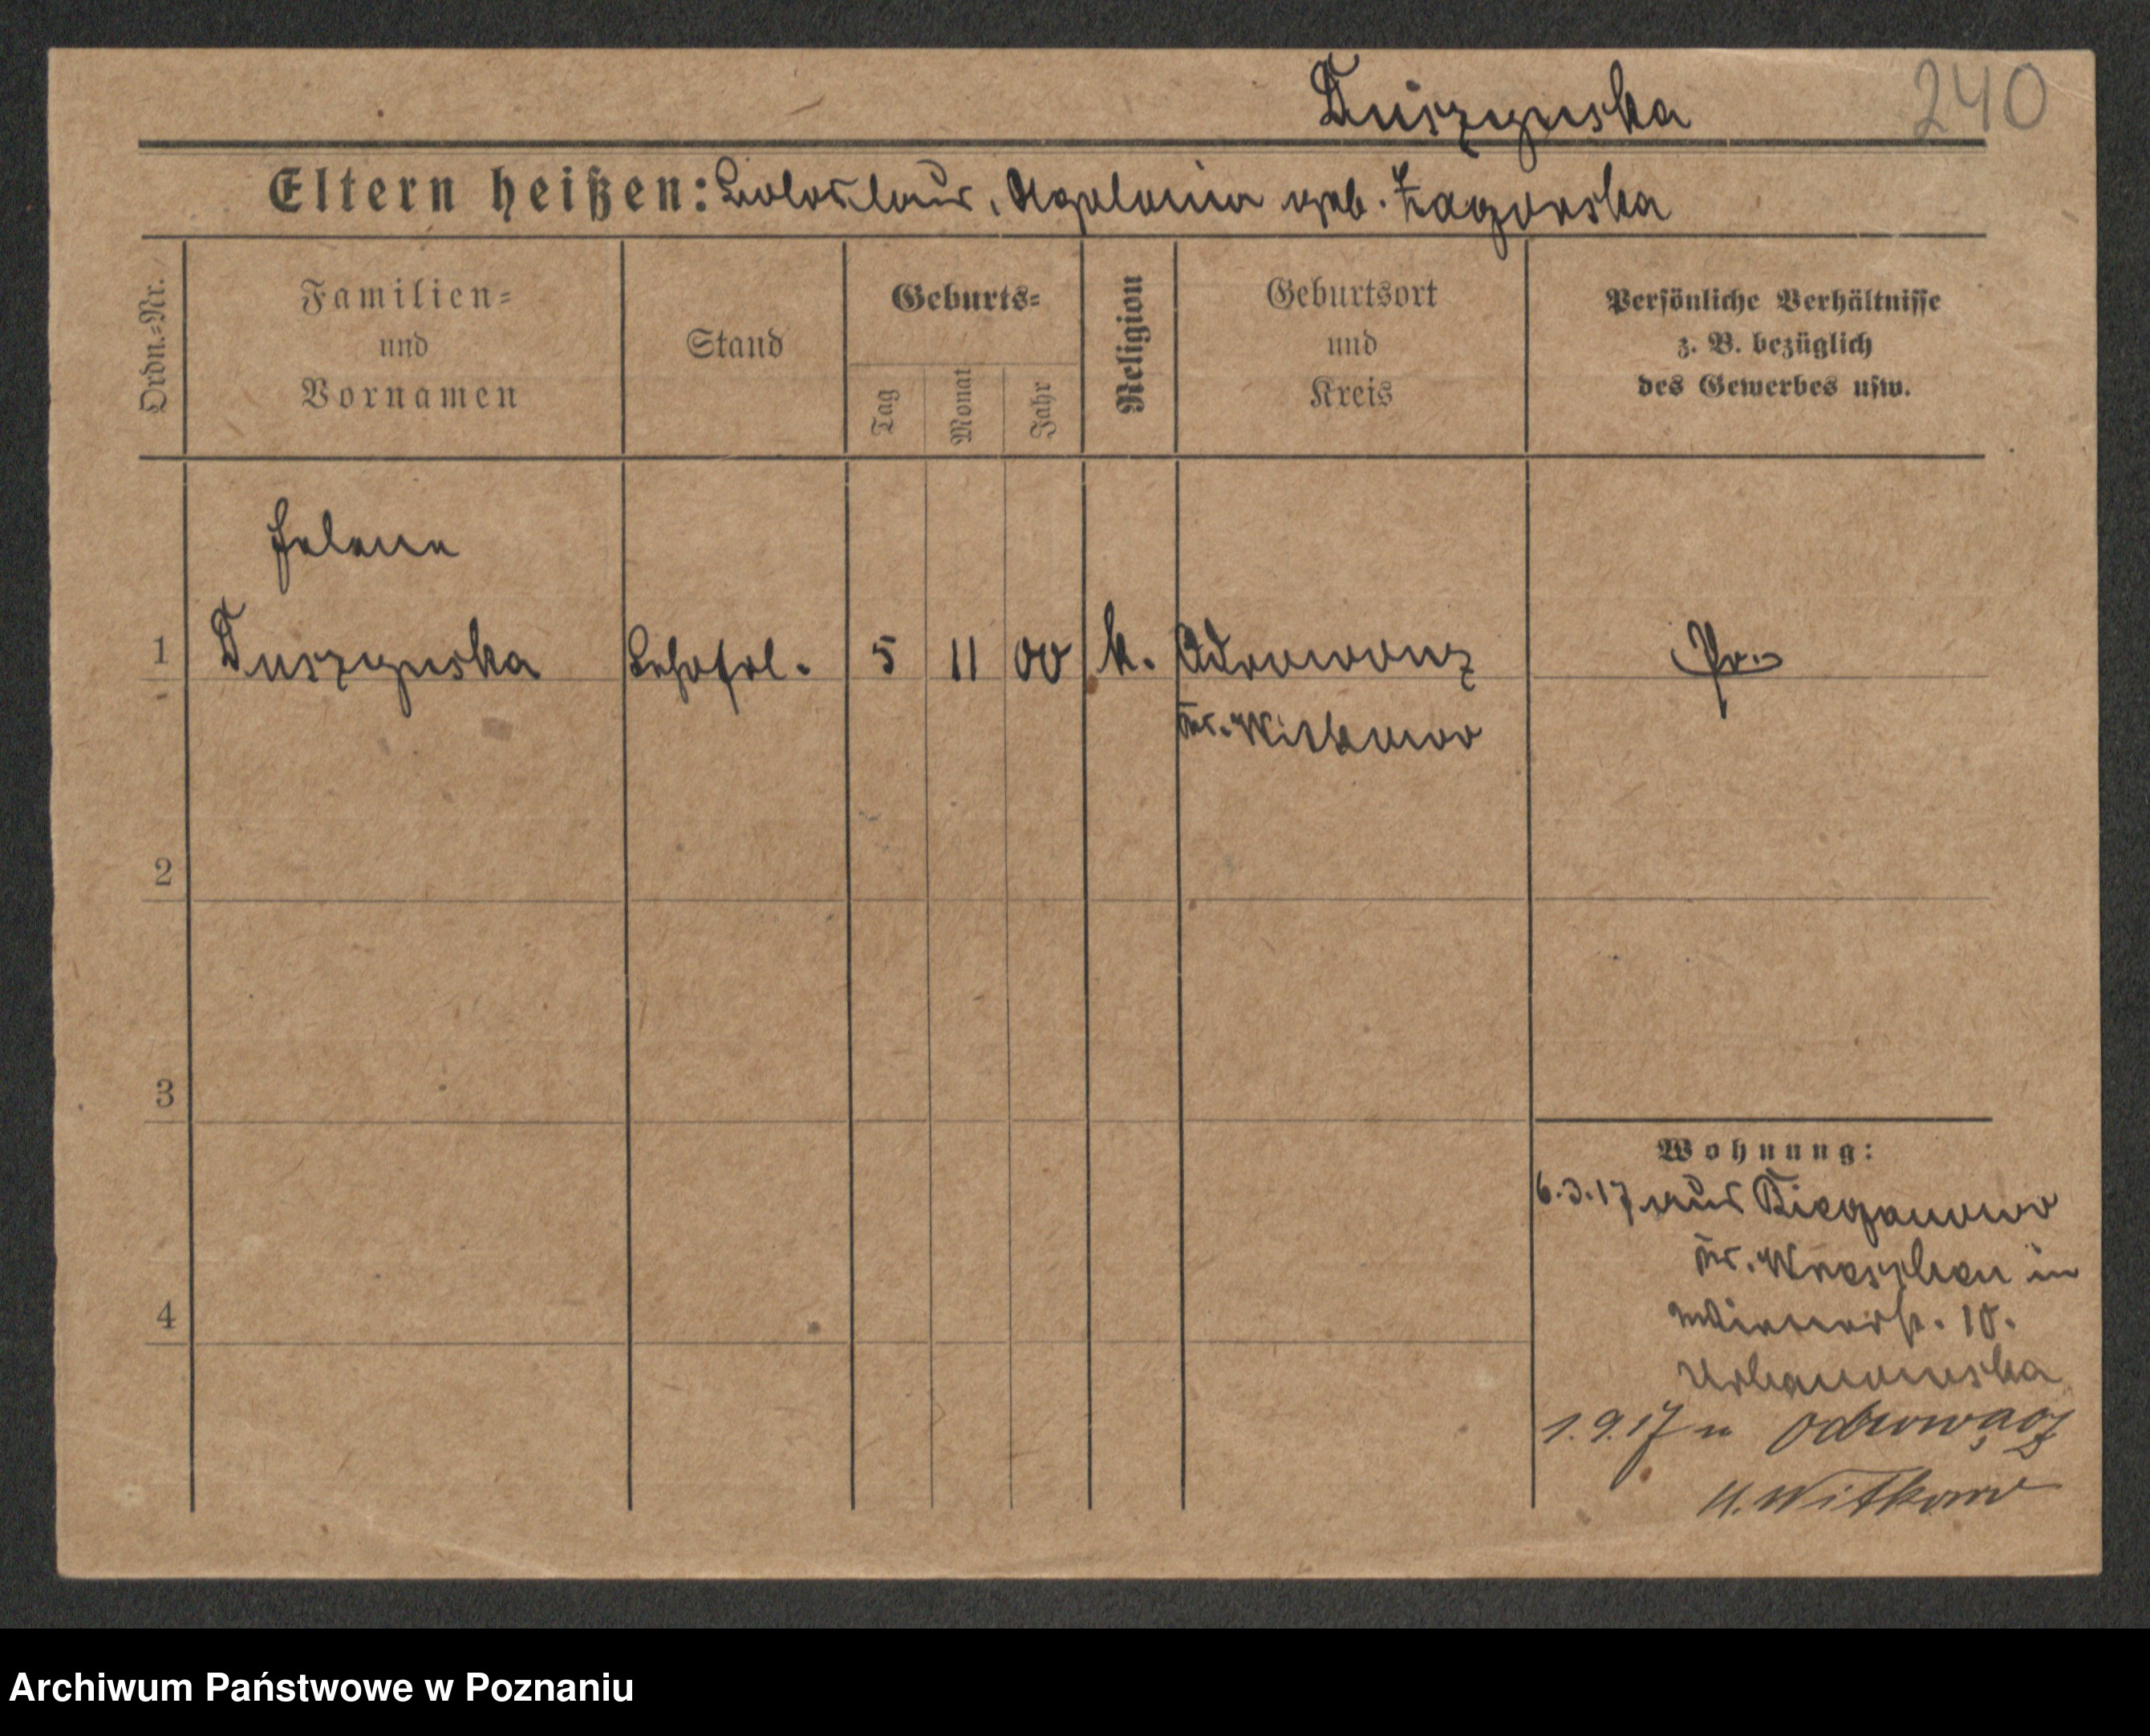 Duszynska
240
Eltern heißen: Boleslaus, Apolonia geb. Zagorska
Ordn.=Nr.
Familien=
und
Vornamen
Stand
Geburts=
Tag
Monat
Jahr
Religion
Geburtsort
und
Kreis
Persönliche Verhältnisse
z. B. bezüglich
des Gewerbes usw.
Helene
1 Duszynska 5 11 00 k. Odrowonz Pr.
Kr. Witkowo
2
3
4
Wohnung:
6.3.17 aus Bieganowo
Kr. Wreschen in
10.
Urbanowska
1.9.17 n Odrowąz
K. Witkowo
Archiwum Państwowe w Poznaniu